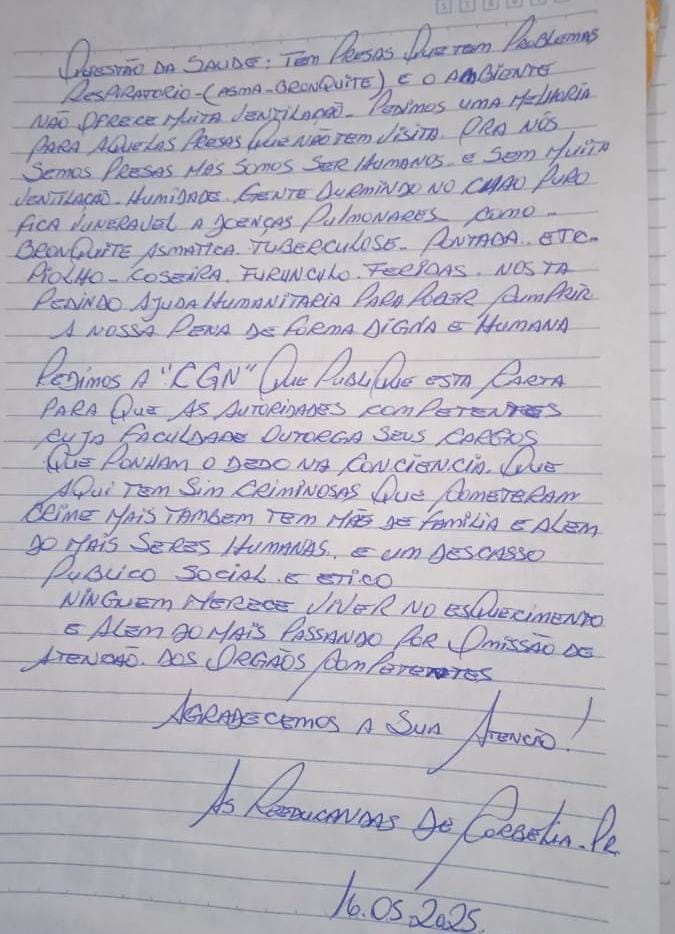 QUESTÃO DA SAUDE: TEM PRESAS QUE TEM PROBLEMAS
RESPIRATORIO-(ASMA-BRONQUITE) E O AMBIENTE
NÃO OFRECE MUITA VENTILAÇÃO. PEDIMOS UMA MELHORIA
PARA AQUELAS PRESAS QUE NÃO TEM VISITA PRA NÓS
SEMOS PRESAS MAS SOMOS SER HUMANOS. E SEM MUITA
VENTILAÇÃO. HUMIDADE. GENTE DURMINDO NO CHAO PURO
FICA VUNERAVEL A DOENÇAS PULMONARES COMO-
BRONQUITE ASMATICA. TUBERCULOSE- PONTADA.. ETC-
PIOLHO- COSEIRA. FURUNCULO. FERIDAS. NOS TA
PEDINDO AJUDA HUMANITARIA PARA PODER CUMPRIR
A NOSSA PENA DE FORMA DIGNA E HUMANA
PEDIMOS A "CGN" QUE PUBLIQUE ESTA CARTA
PARA QUE AS AUTORIDADES COMPETENTES
CUJA FACULDADE OUTORGA SEUS CARGOS
QUE PONHAM O DEDO NA CONCIENCIA. QUE
AQUI TEM SIM CRIMINOSAS QUE COMETERAM
CRIME MAIS TAMBEM TEM MÃE DE FAMILIA E ALEM
DO MAIS SERES HUMANAS.. E UM DESCASSO
PUBLICO SOCIAL. E ETICO
NINGUEM MERECE VIVER NO ESQUECIMENTO
E ALEM DO MAIS PASSANDO POR OMISSÃO DE
ATENCÃO. DOS ORGÃOS COMPETENTES
AGRADECEMOS A SUA ATENCÃO!
AS REEDUCANDAS DE CORBELIA-PR
16.05.2025.